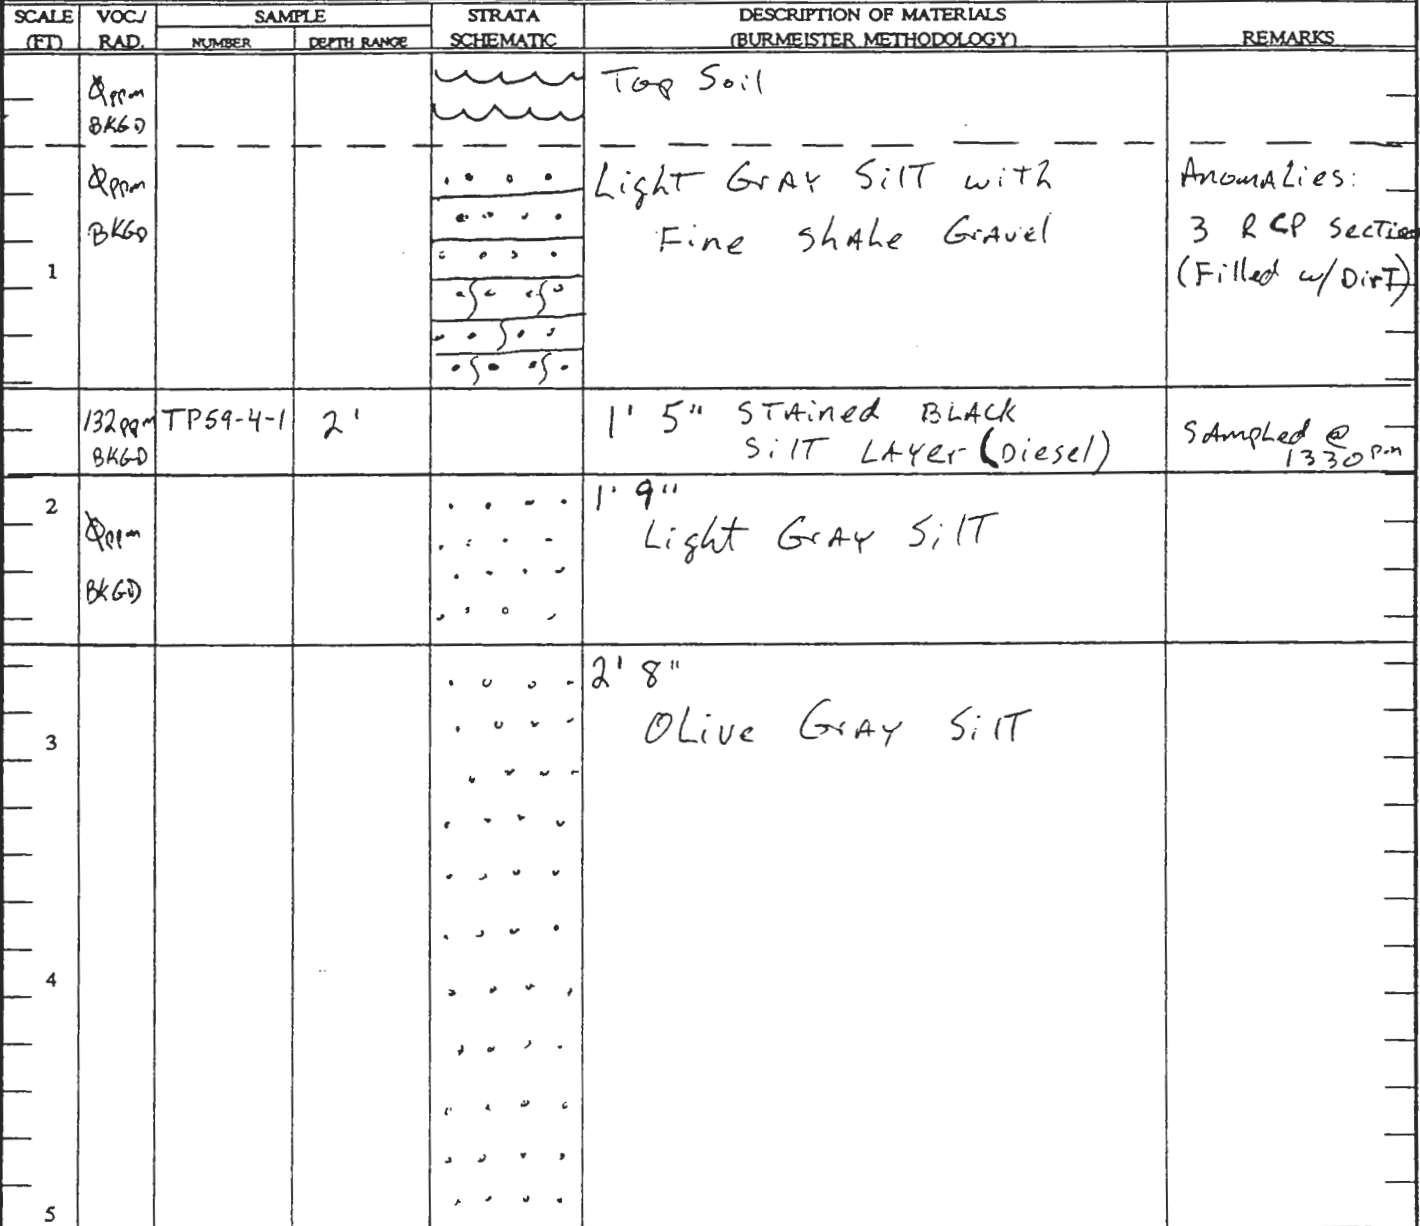 SCALE (FT) VOC./ RAD. SAMPLE NUMBER DEPTH RANGE STRATA SCHEMATIC DESCRIPTION OF MATERIALS (BURMEISTER METHODOLOGY) REMARKS
Øppm
BKGD
Top Soil
Øppm
BKGD
Light Gray Silt with
Fine Shale Gravel
Anomalies:
3 RCP Section
(Filled w/ Dirt)
1
132ppm
BKGD
TP59-4-1
2'
1' 5" Stained BLACK
Silt Layer (Diesel)
Sampled @
1330 pm
2
Øppm
BKGD
1' 9"
Light Gray Silt
2' 8"
Olive Gray Silt
3
4
5